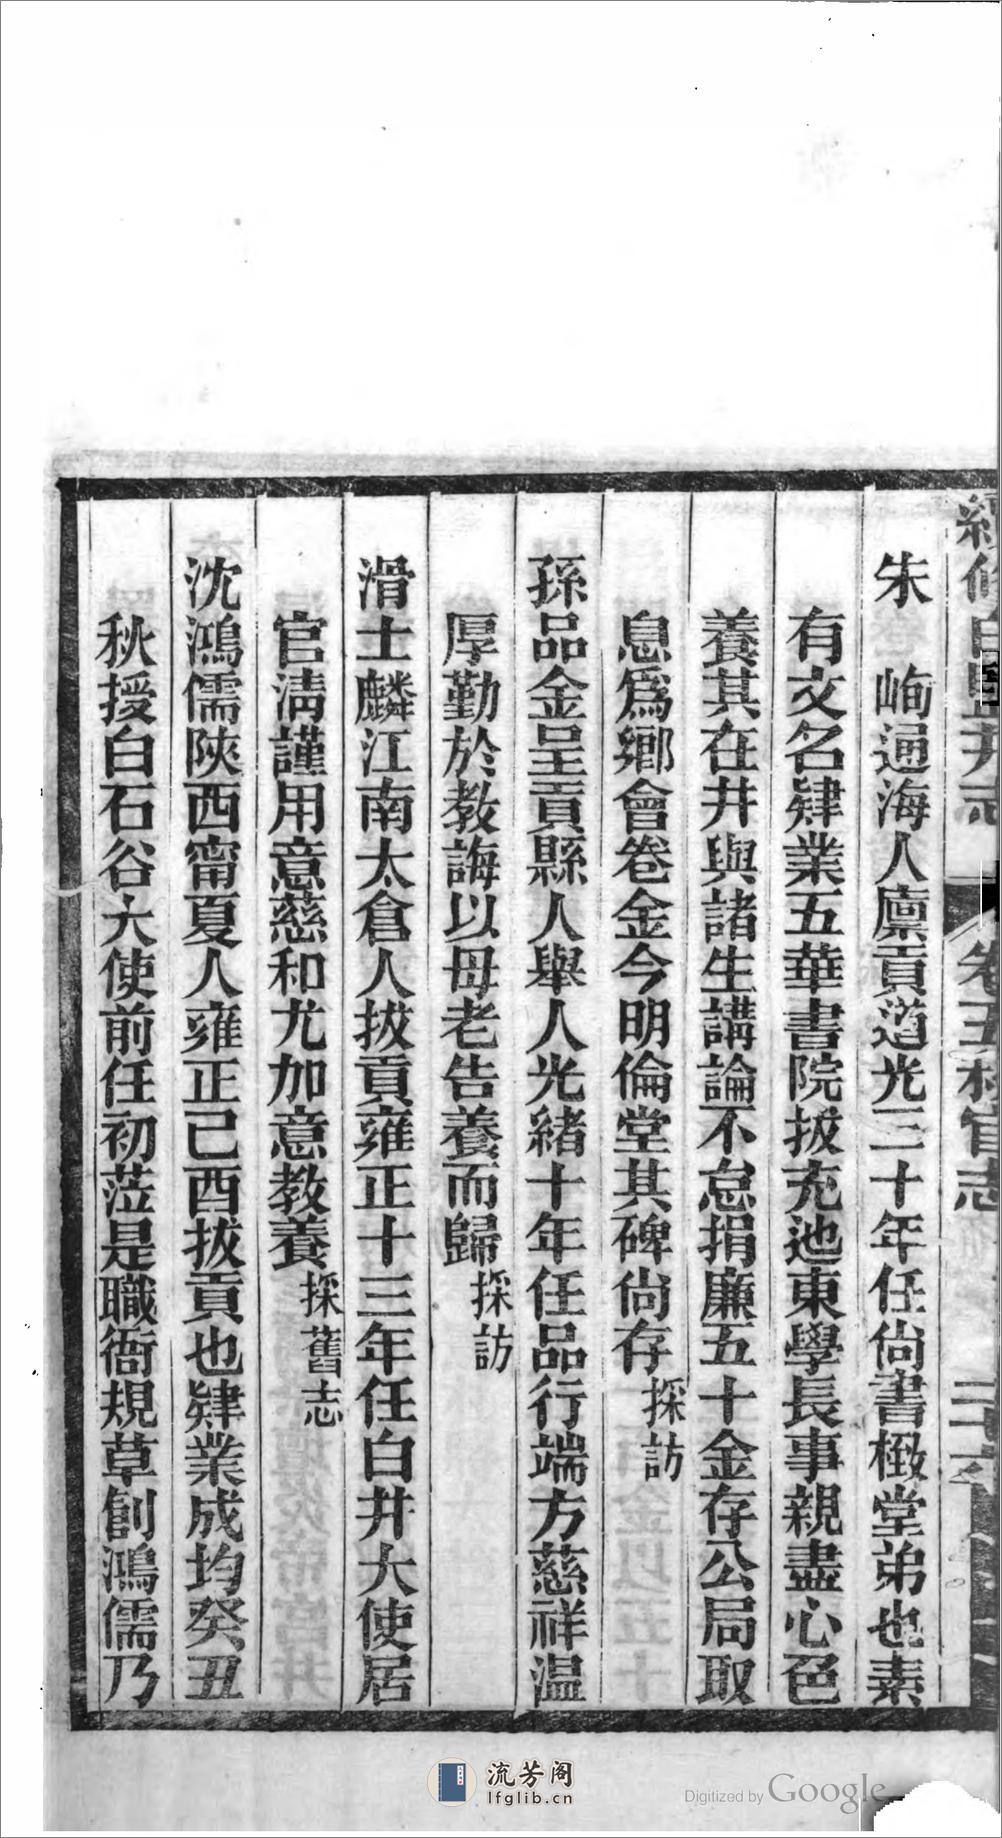 續修白鹽井志 卷五 秩官志
朱　峋通海人廪貢道光三十年任尙書椒堂弟也素
有文名肄業五華書院拔充池東學長事親盡心色
養其在井與諸生講論不怠捐廉五十金存公局取
息爲鄉會卷金今明倫堂其碑尙存採訪
孫品金呈貢縣人舉人光緒十年任品行端方慈祥温
厚勤於教誨以母老告養而歸採訪
滑士麟江南太倉人拔貢雍正十三年任白井大使居
官淸謹用意慈和尤加意教養採舊志
沈鴻儒陝西甯夏人雍正己酉拔貢也肄業成均癸丑
秋授白石谷大使前任初蒞是職衙規草創鴻儒乃
流芳阁
lfglib.cn
Digitized by Google